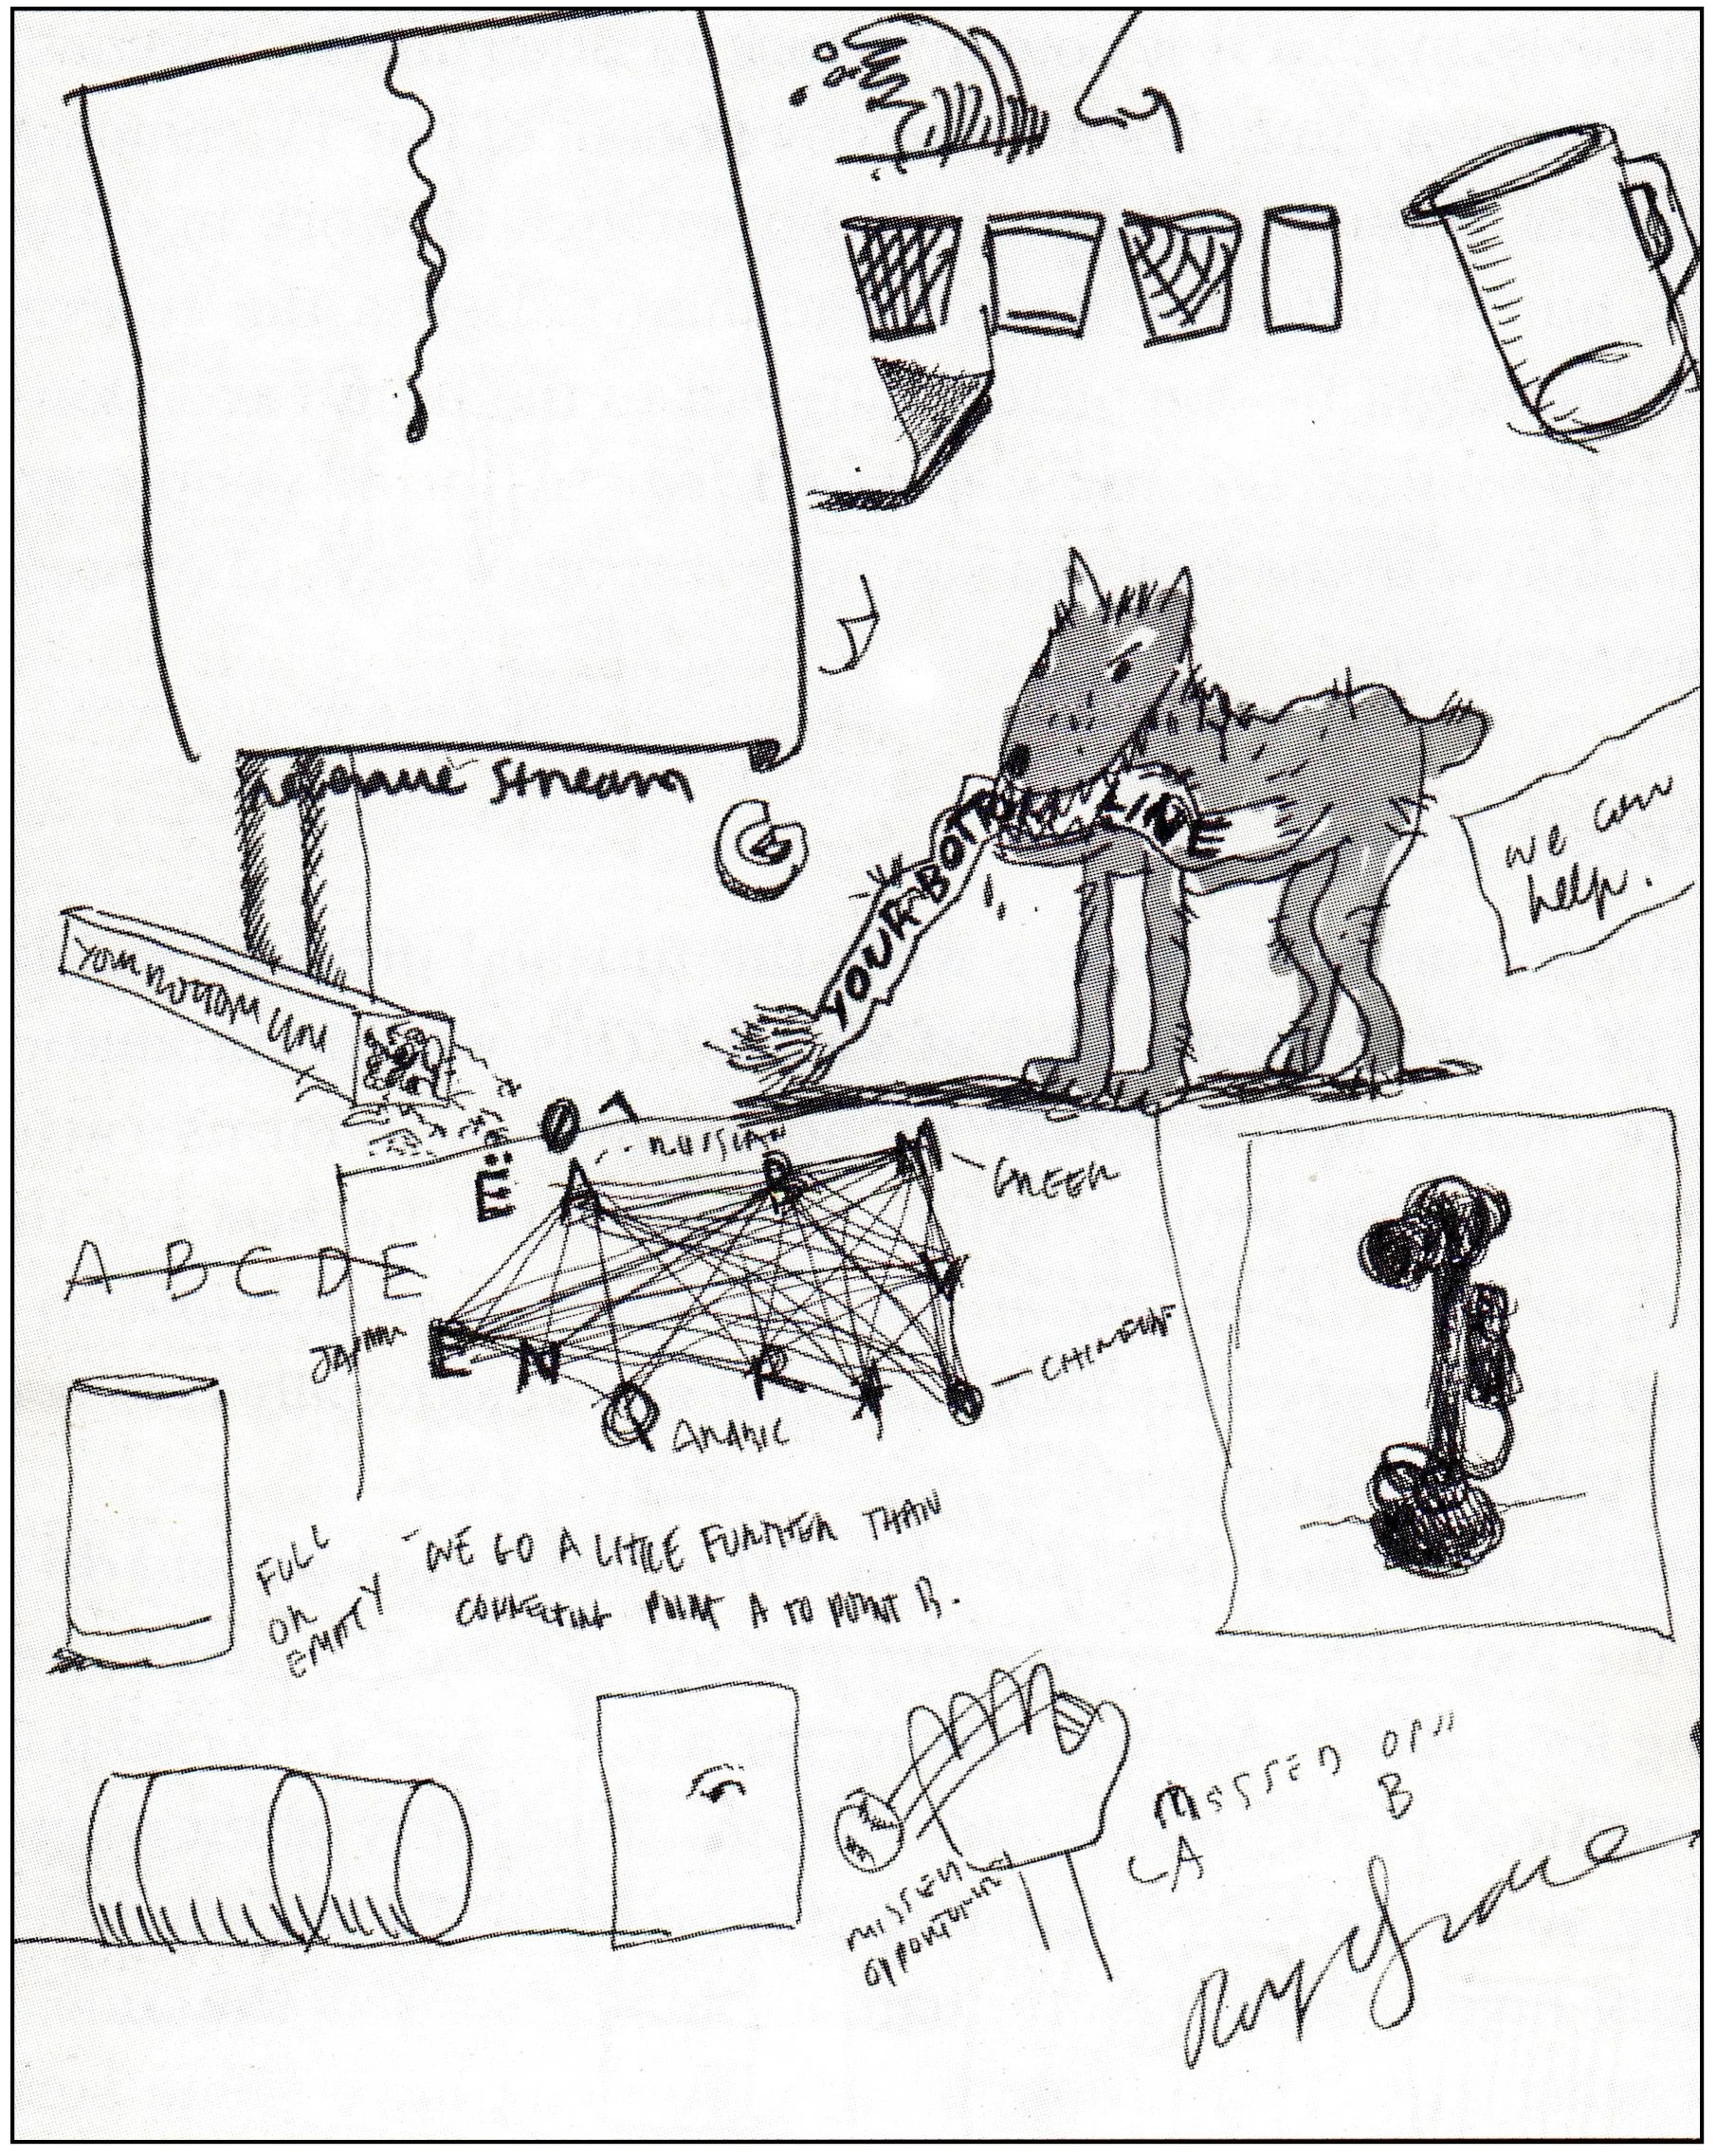 revenue stream
YOUR BOTTOM LINE
we can
help.
YOUR BOTTOM LINE
Ø
RUSSIAN
Ë A B M
GREEK
A B C D E
V
JAPAN
E N R
Q
ARABIC
CHINESE
FULL
OR
EMPTY
WE GO A LITTLE FURTHER THAN
CONNECTING POINT A TO POINT B.
MISSED OP"
B
A
MISSED
OPPORTUNITY
Roy Grace